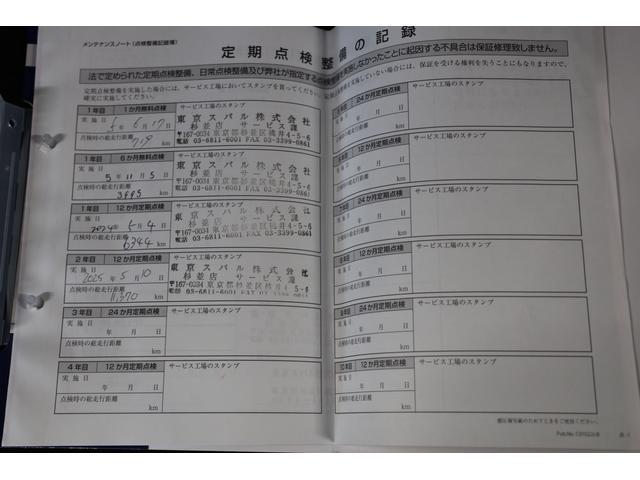 メンテナンスノート（点検整備記録簿）
定期点検整備の記録
法で定められた定期点検整備、日常点検整備及び弊社が指定する点検整備を実施しなかったことに起因する不具合は保証修理致しません。
定期点検を実施した場合には、サービス工場においてスタンプを貰ってください。
を実施していない場合には、保証を受ける権利を失うこともなりますので、
確実に実施してください。
1年目 1か月無料点検 サービス工場のスタンプ
実施日
5年6月17日
点検時の総走行距離
719 km
東京スバル株式会社
杉並店 サービス課
〒167-0034 東京都杉並区桃井4-5-6
電話 03-6811-6001 FAX 03-3399-0861
1年目 6か月無料点検 サービス工場のスタンプ
実施日
5年11月5日
点検時の総走行距離
km
東京スバル株式会社
杉並店 サービス課
〒167-0034 東京都杉並区桃井4-5-6
電話 03-6811-6001 FAX 03-3399-0861
1年目 12か月定期点検 サービス工場のスタンプ
実施日
2024年5月4日
点検時の総走行距離
6344 km
東京スバル株式会社
杉並店 サービス課
〒167-0034 東京都杉並区桃井4-5-6
電話 03-6811-6001 FAX 03-3399-0861
2年目 24か月定期点検 サービス工場のスタンプ
実施日
2025年5月10日
点検時の総走行距離
11,370 km
東京スバル株式会社
杉並店 サービス課
〒167-0034 東京都杉並区桃井4-5-6
電話 03-6811-6001 FAX 03-3399-0861
3年目 24か月定期点検 サービス工場のスタンプ
実施日
年 月 日
点検時の総走行距離
km
4年目 12か月定期点検 サービス工場のスタンプ
実施日
年 月 日
点検時の総走行距離
km
24か月定期点検 サービス工場のスタンプ
実施日
年 月 日
点検時の総走行距離
km
12か月定期点検 サービス工場のスタンプ
実施日
年 月 日
点検時の総走行距離
km
7年目 24か月定期点検 サービス工場のスタンプ
実施日
年 月 日
点検時の総走行距離
km
12か月定期点検 サービス工場のスタンプ
実施日
年 月 日
点検時の総走行距離
km
24か月定期点検 サービス工場のスタンプ
実施日
年 月 日
点検時の総走行距離
km
10年目 12か月定期点検 サービス工場のスタンプ
実施日
年 月 日
点検時の総走行距離
km